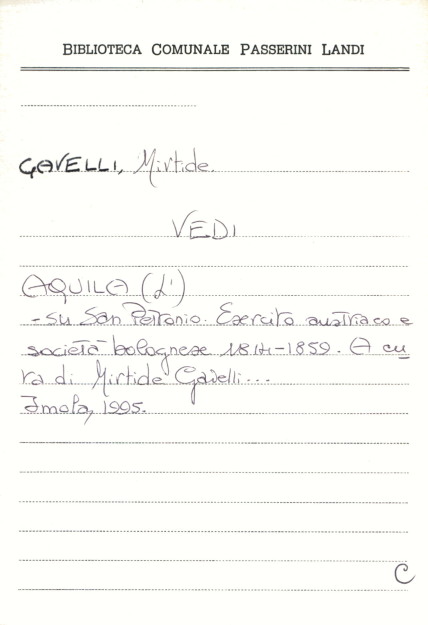 BIBLIOTECA COMUNALE PASSERINI LANDI
GAVELLI, Mirtide.
VEDI
AQUILA (L')
- su San Petronio. Esercito austriaco e
società bolognese 1814-1859. A cu
ra di Mirtide Gavelli...
Imola, 1995.
C